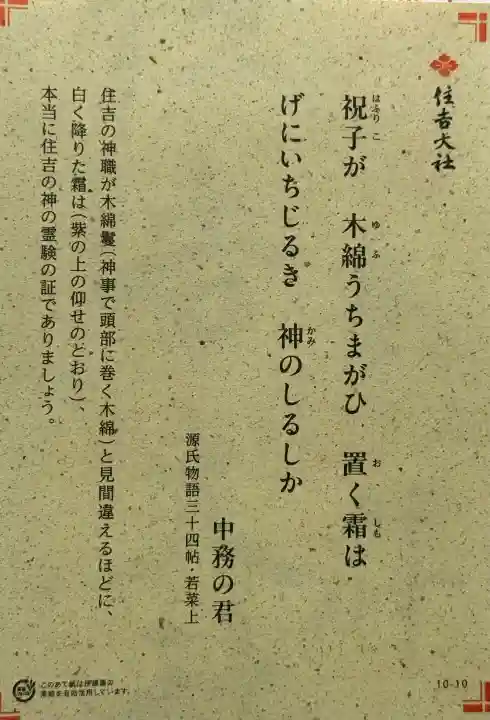 住吉大社
祝子が 木綿うちまがひ 置く霜は
はふりこ ゆふ お しも
げにいちじるき 神のしるしか
かみ
中務の君
源氏物語三十四帖・若菜上
住吉の神職が木綿鬘（神事で頭部に巻く木綿）と見間違えるほどに、
白く降りた霜は（紫の上の仰せのとおり）、
本当に住吉の神の霊験の証でありましょう。
このあて紙は伊藤園の
茶殻を有効活用しています。
10-10